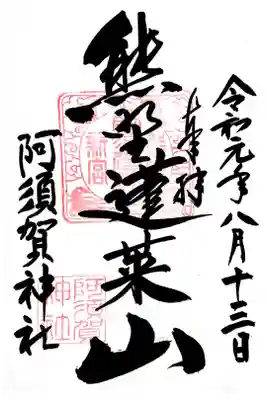 令和元年八月十三日
奉拝
熊野蓬莱山
阿須賀神社
阿須賀
神社